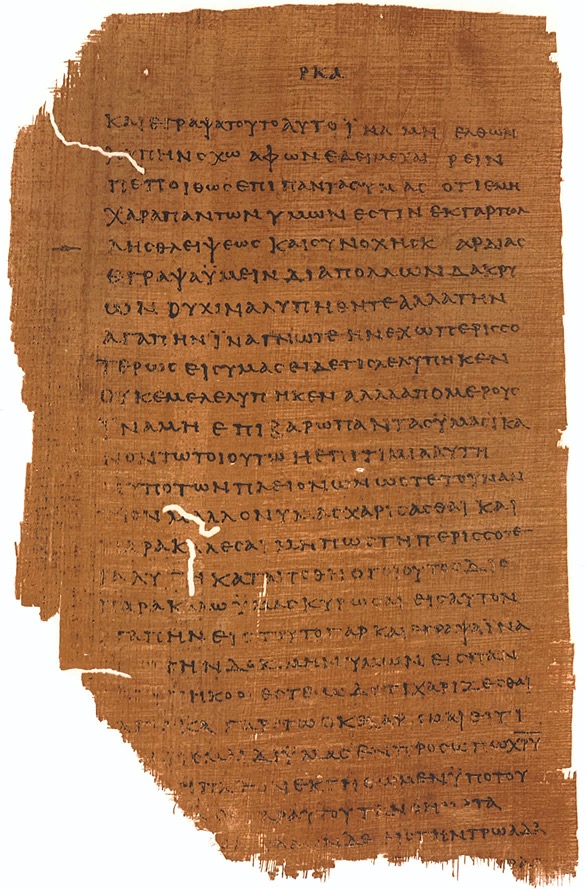 ΡΚΑ
ΚΑΙ ΕΓΡΑΨΑ ΤΟΥΤΟ ΑΥΤΟ ΪΝΑ ΜΗ ΕΛΘΩΝ
ΛΥΠΗΝ ΣΧΩ ΑΦ ΩΝ ΕΔΕΙ ΜΕ ΧΑΙΡΕΙΝ
ΠΕΠΟΙΘΩϹ ΕΠΙ ΠΑΝΤΑϹ ΥΜΑϹ ΟΤΙ Η ΕΜΗ
ΧΑΡΑ ΠΑΝΤΩΝ ΥΜΩΝ ΕϹΤΙΝ ΕΚ ΓΑΡ ΠΟΛ
ΛΗϹ ΘΛΕΙΨΕΩϹ ΚΑΙ ϹΥΝΟΧΗϹ ΚΑΡΔΙΑϹ
ΕΓΡΑΨΑ ΫΜΕΙΝ ΔΙΑ ΠΟΛΛΩΝ ΔΑΚΡΥ
ΩΝ ΟΥΧ ΙΝΑ ΛΥΠΗΘΗΤΕ ΑΛΛΑ ΤΗΝ
ΑΓΑΠΗΝ ΪΝΑ ΓΝΩΤΕ ΗΝ ΕΧΩ ΠΕΡΙϹϹΟ
ΤΕΡΩϹ ΕΙϹ ΥΜΑϹ ΕΙ ΔΕ ΤΙϹ ΛΕΛΥΠΗΚΕΝ
ΟΥΚ ΕΜΕ ΛΕΛΥΠΗΚΕΝ ΑΛΛΑ ΑΠΟ ΜΕΡΟΥϹ
ΪΝΑ ΜΗ ΕΠΙΒΑΡΩ ΠΑΝΤΑϹ ΫΜΑϹ ΙΚΑ
ΝΟΝ ΤΩ ΤΟΙΟΥΤΩ Η ΕΠΙΤΙΜΙΑ ΑΥΤΗ
Η ΥΠΟ ΤΩΝ ΠΛΕΙΟΝΩΝ ΩϹΤΕ ΤΟΥΝΑΝ
ΤΙΟΝ ΜΑΛΛΟΝ ΥΜΑϹ ΧΑΡΙϹΑϹΘΑΙ ΚΑΙ
ΠΑΡΑΚΑΛΕϹΑΙ ΜΗ ΠΩϹ ΤΗ ΠΕΡΙϹϹΟΤΕ
ΡΑ ΛΥΠΗ ΚΑΤΑΠΟΘΗ Ο ΤΟΙΟΥΤΟϹ ΔΙΟ
ΠΑΡΑΚΑΛΩ ΫΜΑϹ ΚΥΡΩϹΑΙ ΕΙϹ ΑΥΤΟΝ
ΑΓΑΠΗΝ ΕΙϹ ΤΟΥΤΟ ΓΑΡ ΚΑΙ ΕΓΡΑΨΑ ΪΝΑ
ΤΗΝ ΔΟΚΙΜΗΝ ΥΜΩΝ ΕΙϹ ΠΑΝ
ΥΠΗΚΟΟΙ ΕϹΤΕ Ω ΔΕ ΤΙ ΧΑΡΙΖΕϹΘΑΙ
ΚΑ ΓΑΡ
ΔΙ ΫΜΑϹ ΕΝ ΠΡΟϹΩΠΩ ΧΡΥ
ΠΛΕΟΝΕΚΤΗΘΩΜΕΝ ΫΠΟ ΤΟΥ
ΑΥΤΟΥ ΤΑ ΝΟΗΜΑΤΑ
ΤΗΝ ΤΡΩΑΔΑ